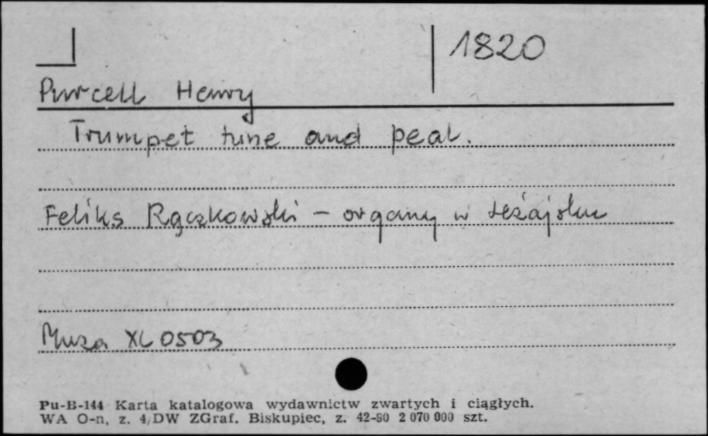 1820
Purcell Henry
Trumpet tune and peal.
Feliks Rączkowski – organy w Leżajsku
Muza XL 0503
Pu-B-144 Karta katalogowa wydawnictw zwartych i ciągłych.
WA O-n, z. 4/DW ZGraf. Biskupiec, z. 42-80 2 070 000 szt.